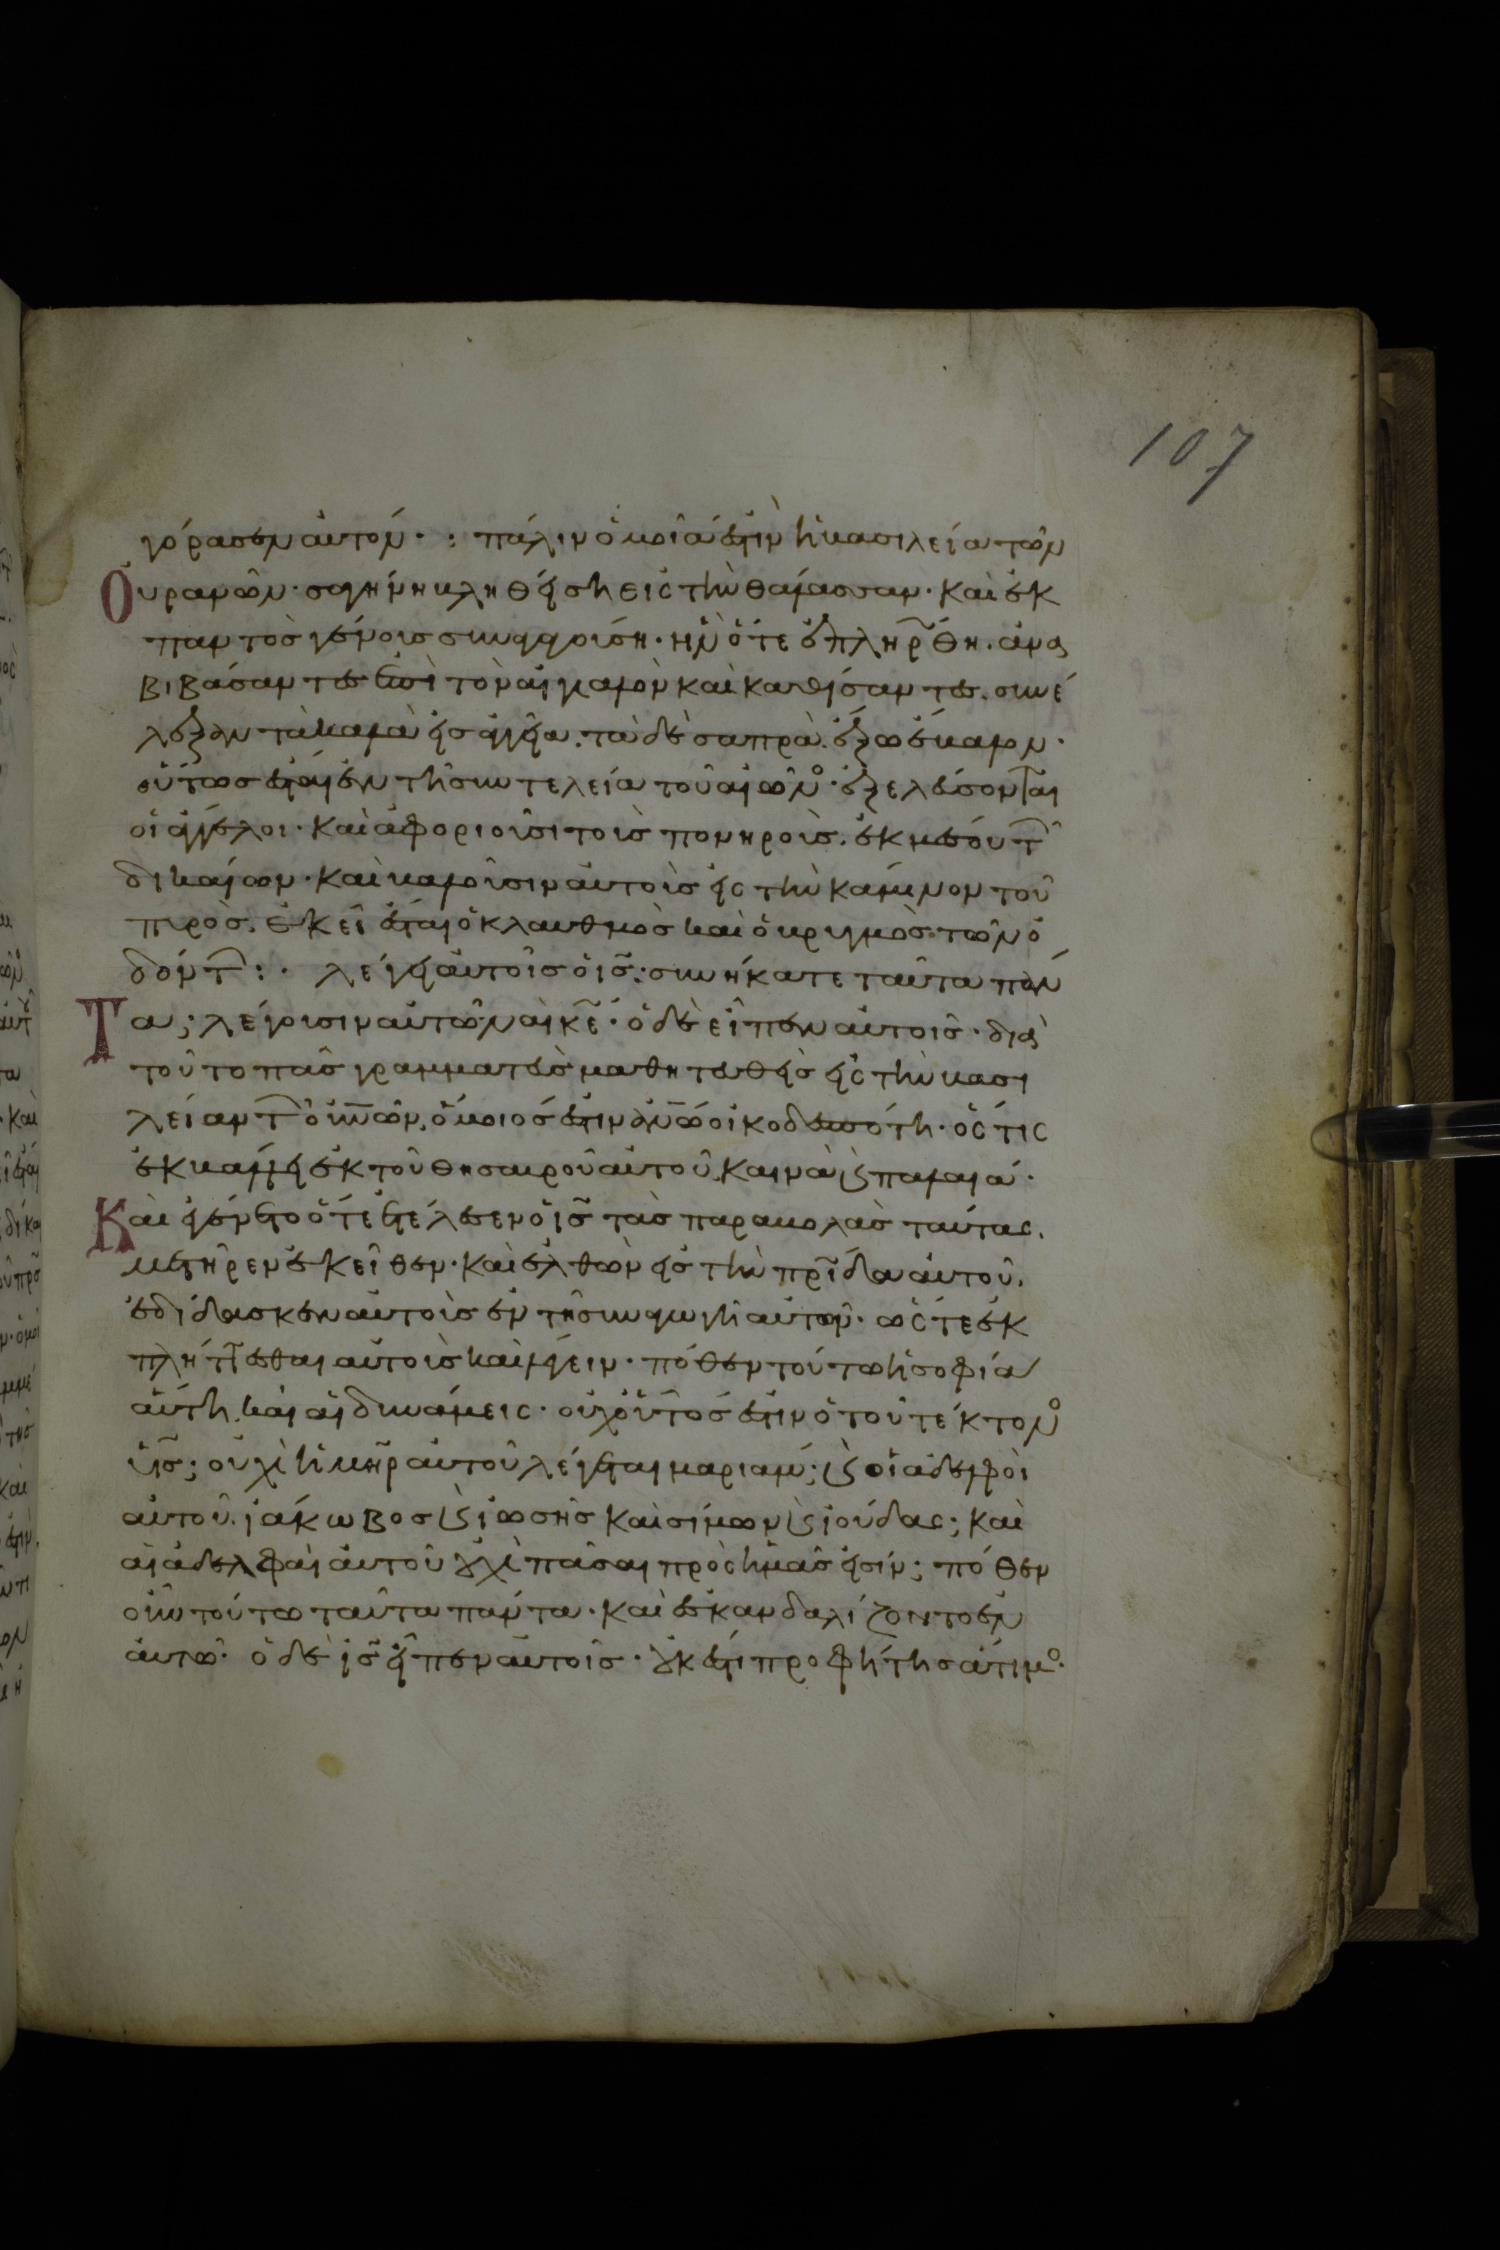 107
γόρασεν αὐτόν · : πάλιν ὁμοία ἐστὶν ἡ βασιλεία τῶν
Οὐρανῶν · σαγήνη βληθείση εἰς τὴν θάλασσαν · καὶ ἐκ
παντὸς γένους συναγούση · ἣν ὅτε ἐπληρώθη · ἀνα
βιβάσαντες ἐπὶ τὸν αἰγιαλὸν καὶ καθίσαντες · συνέ
λεξαν τὰ καλὰ εἰς ἀγγεῖα · τὰ δὲ σαπρὰ · ἔξω ἔβαλον ·
οὕτως ἔσται ἐν τῇ συντελεία τοῦ αἰῶνο · ἐξελεύσονται
οἱ ἄγγελοι · καὶ ἀφοριοῦσι τοὺς πονηροὺς · ἐκ μέσου τ
δικαίων · καὶ βαλοῦσιν αὐτοὺς εἰς τὴν κάμινον τοῦ
πυρὸς · ἐκεῖ ἔσται ὁ κλαυθμὸς καὶ ὁ βρυγμὸς τῶν ὀ
δόντ : · λέγει αὐτοῖς ὁ ι̅ς̅ · συνήκατε ταῦτα πάν
Τα ; λέγουσιν αὐτῶ · ναὶ κ̅ε̅ · ὁ δὲ εἶπεν αὐτοῖς · διὰ
τοῦτο πᾶς γραμματεὺς μαθητευθεὶς εἰς τὴν βασι
λείαν τ ο̅υ̅ν̅ῶν · ὅμοιός ἐστιν α̅ν̅ω̅ οἰκοδεσπότη · ὅς τις
ἐκβάλλει ἐκ τοῦ θησαυροῦ αὐτοῦ καινὰ ϗ παλαιά ·
Καὶ ἐγένετο ὅτε ἐτέλεσεν ὁ ι̅ς̅ τὰς παραβολὰς ταύτας ·
μετῆρεν ἐκεῖθεν · καὶ ἐλθὼν εἰς τὴν π̅ρ̅ίδα αὐτοῦ ·
ἐδίδασκεν αὐτοὺς ἐν τῇ συναγωγῇ αὐτῶν · ὥς τε ἐκ
πλήττεσθαι αὐτοὺς καὶ λέγειν · πόθεν τούτω ἡ σοφία
αὕτη καὶ αἱ δυνάμεις · οὐχ οὗτός ἐστιν ὁ τοῦ τέκτονο
υ̅ς̅ ; οὐχὶ ἡ μ̅η̅ρ̅ αὐτοῦ λέγεται μαριάμ ; ϗ οἱ ἀδελφοὶ
αὐτοῦ · ἰάκωβος ϗ ἰωσῆς καὶ σίμων ϗ ἰούδας ; καὶ
αἱ ἀδελφαὶ αὐτοῦ οὐχὶ πᾶσαι πρὸς ἡμᾶς εἰσίν ; πόθεν
οὖν τούτω ταῦτα πάντα · καὶ ἐσκανδαλίζοντο ἐν
αὐτῶ · ὁ δὲ ι̅ς̅ εἶπεν αὐτοῖς · οὐκ ἔστι προφήτης ἄτιμο ·